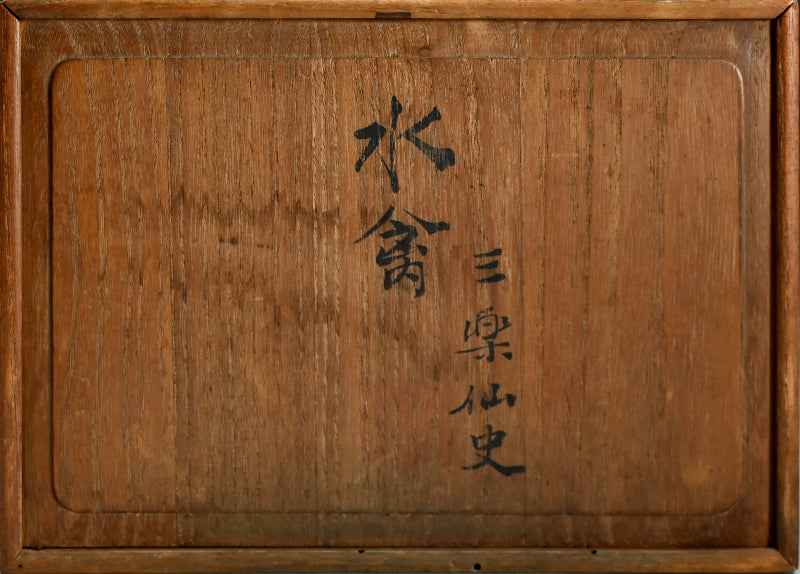 水禽
三楽仙史